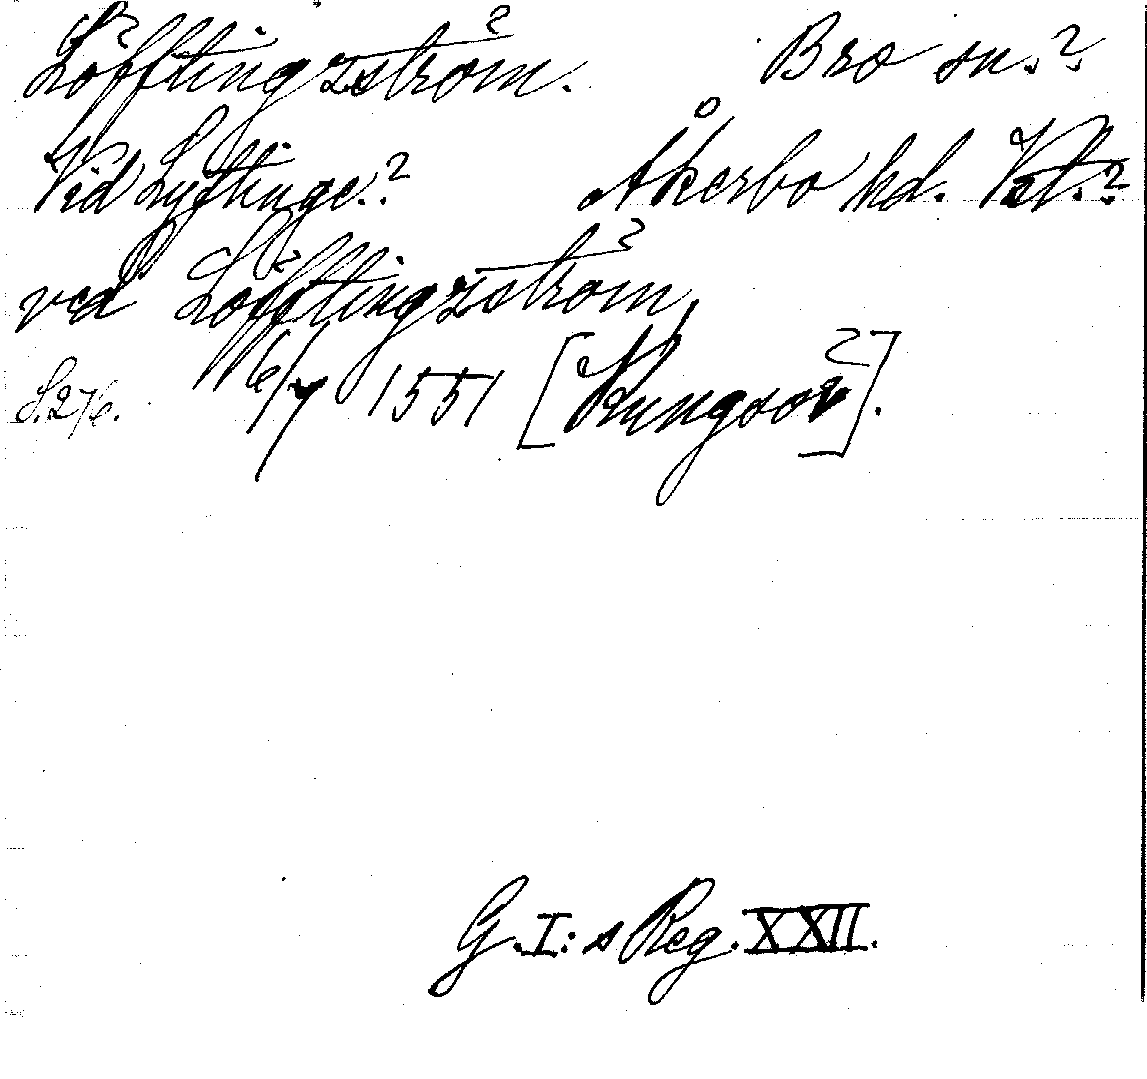 Löfftingzström. Bro sn.?
Vid Lyftinge? Åkerbo hd. Vstm.?
ved Löfftingzström,
S. 276. 16/7 1551 [Kungsör].
G. I:s Reg. XXII.